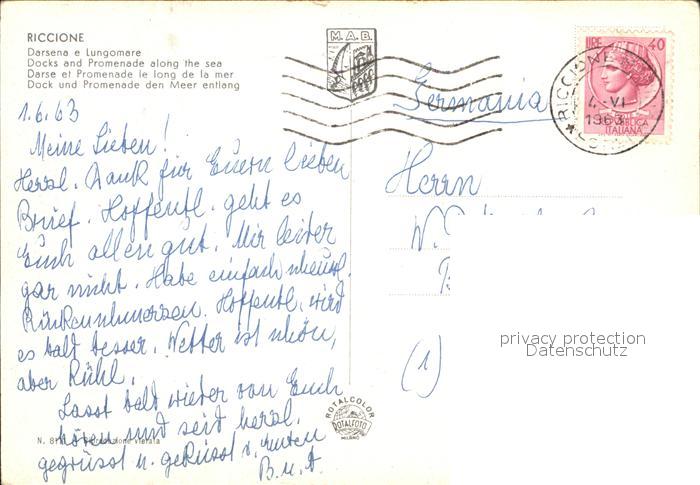 RICCIONE
Darsena e Lungomare
Docks and Promenade along the sea
Darse et Promenade le long de la mer
Dock und Promenade den Meer entlang
M.A.B.
LIRE 40
REPUBBLICA
ITALIANA
RICCIONE
4-VI
1963
1.6.63
Meine Lieben!
Herzl. Dank für Euern lieben
Brief. Hoffentl. geht es
Euch allen gut. Mir leider
gar nicht. Habe einfach
Rückenschmerzen. Hoffentl. wird
es bald besser. Wetter ist schön,
aber kühl.
Lasst bald wieder von Euch
hören und seid herzl.
gegrüsst u. geküsst v.
B. u. A.
Germania
Herrn
W.
(1)
privacy protection
Datenschutz
ROTALCOLOR
ROTALFOTO
MILANO
N. Riproduzione vietata